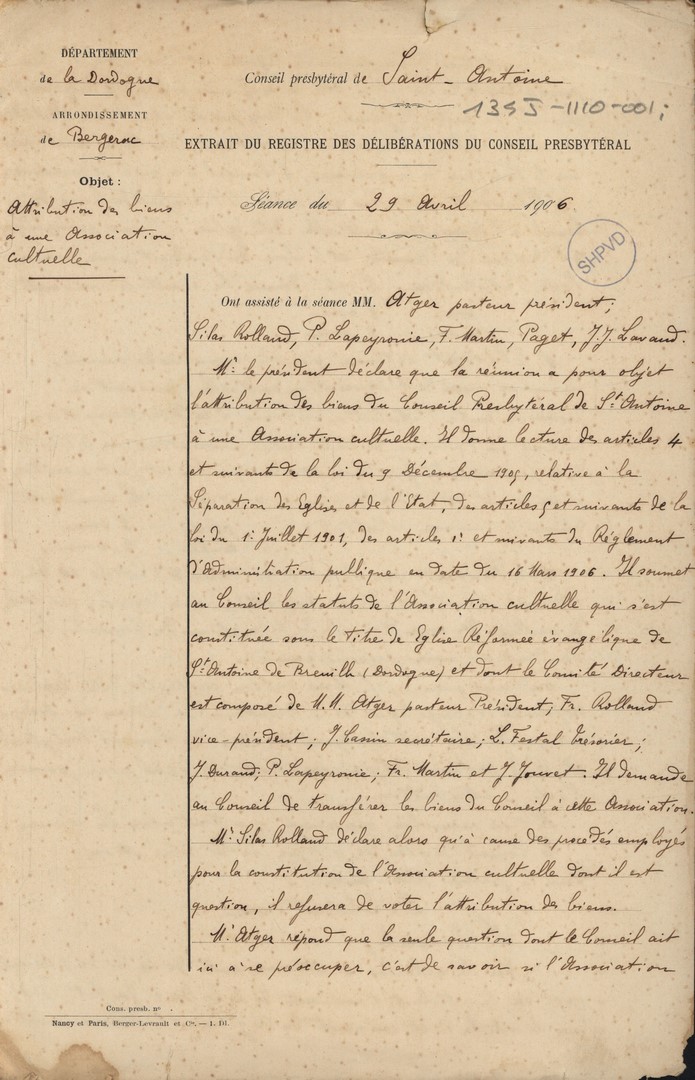 DÉPARTEMENT
de la Dordogne
ARRONDISSEMENT
de Bergerac
Objet :
Attribution des biens
à une Association
cultuelle
Conseil presbytéral de Saint-Antoine
135J-1110-001;
EXTRAIT DU REGISTRE DES DÉLIBÉRATIONS DU CONSEIL PRESBYTÉRAL
Séance du 29 Avril 1906
SHPVD
Ont assisté à la séance MM. Atger pasteur président;
Silas Rolland, P. Lapeyronie, F. Martin, Paget, J.J. Lavaud.
Mr. le président déclare que la réunion a pour objet
l'attribution des biens du Conseil Presbytéral de St Antoine
à une Association cultuelle. Il donne lecture des articles 4
et suivants de la loi du 9 Décembre 1905, relative à la
Séparation des Eglises et de l'Etat, des articles 5 et suivants de la
loi du 1er Juillet 1901, des articles 1er et suivants du Règlement
d'Administration publique en date du 16 Mars 1906. Il soumet
au Conseil les statuts de l'Association cultuelle qui s'est
constituée sous le titre de Eglise Réformée évangélique de
St Antoine de Breuilh (Dordogne) et dont le Comité Directeur
est composé de M.M. Atger pasteur Président, Fr. Rolland
vice-président; J. Cassin secrétaire; L. Festal trésorier;
J. Durand; P. Lapeyronie; Fr. Martin et J. Jouvet. Il demande
au Conseil de transférer les biens du Conseil à cette Association.
Mr Silas Rolland déclare alors qu'à cause des procédés employés
pour la constitution de l'Association cultuelle dont il est
question, il refusera de voter l'attribution des biens.
Mr Atger répond que la seule question dont le Conseil ait
ici à se préoccuper, c'est de savoir si l'Association
Cons. presb. nº .
Nancy et Paris, Berger-Levrault et Cie. — 1. Dl.